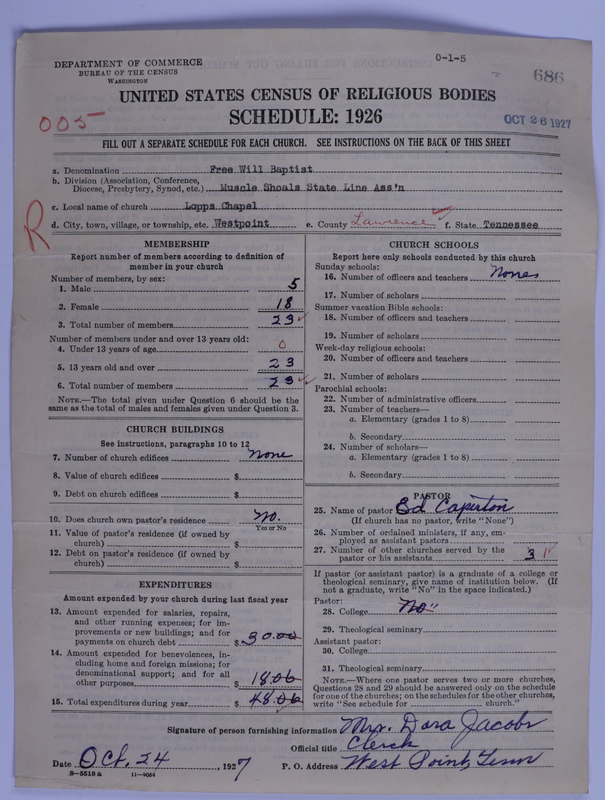 DEPARTMENT OF COMMERCE
BUREAU OF THE CENSUS
WASHINGTON
0-1-5
686
UNITED STATES CENSUS OF RELIGIOUS BODIES
SCHEDULE: 1926
005
OCT 26 1927
FILL OUT A SEPARATE SCHEDULE FOR EACH CHURCH. SEE INSTRUCTIONS ON THE BACK OF THIS SHEET
a. Denomination Free Will Baptist
b. Division (Association, Conference,
Diocese, Presbytery, Synod, etc.) Muscle Shoals State Line Ass'n
c. Local name of church Lopps Chapel
R
d. City, town, village, or township, etc. Westpoint e. County Lawrence f. State Tennessee
MEMBERSHIP
Report number of members according to definition of
member in your church
Number of members, by sex:
1. Male 5
2. Female 18
3. Total number of members 23
Number of members under and over 13 years old:
4. Under 13 years of age 0
5. 13 years old and over 23
6. Total number of members 23
NOTE.—The total given under Question 6 should be the
same as the total of males and females given under Question 3.
CHURCH BUILDINGS
See instructions, paragraphs 10 to 12
7. Number of church edifices None
8. Value of church edifices $
9. Debt on church edifices $
10. Does church own pastor's residence No.
Yes or No
11. Value of pastor's residence (if owned by
church) $
12. Debt on pastor's residence (if owned by
church) $
EXPENDITURES
Amount expended by your church during last fiscal year
13. Amount expended for salaries, repairs,
and other running expenses; for im-
provements or new buildings; and for
payments on church debt $ 30.00
14. Amount expended for benevolences, in-
cluding home and foreign missions; for
denominational support; and for all
other purposes $ 18.06
15. Total expenditures during year $ 48.06
CHURCH SCHOOLS
Report here only schools conducted by this church
Sunday schools:
16. Number of officers and teachers None
17. Number of scholars
Summer vacation Bible schools:
18. Number of officers and teachers
19. Number of scholars
Week-day religious schools:
20. Number of officers and teachers
21. Number of scholars
Parochial schools:
22. Number of administrative officers
23. Number of teachers—
a. Elementary (grades 1 to 8)
b. Secondary
24. Number of scholars—
a. Elementary (grades 1 to 8)
b. Secondary
PASTOR
25. Name of pastor Ed. Caperton
(If church has no pastor, write "None")
26. Number of ordained ministers, if any, em-
ployed as assistant pastors
27. Number of other churches served by the
pastor or his assistants 3 1
If pastor (or assistant pastor) is a graduate of a college or
theological seminary, give name of institution below. (If
not a graduate, write "No" in the space indicated.)
Pastor:
28. College "No"
29. Theological seminary
Assistant pastor:
30. College
31. Theological seminary
NOTE.—Where one pastor serves two or more churches,
Questions 28 and 29 should be answered only on the schedule
for one of the churches; on the schedules for the other churches,
write "See schedule for church."
Signature of person furnishing information Mrs. Dora Jacobs
Official title Clerk
Date Oct, 24, 1927 P. O. Address West Point, Tenn
8-5518 a 11-9054